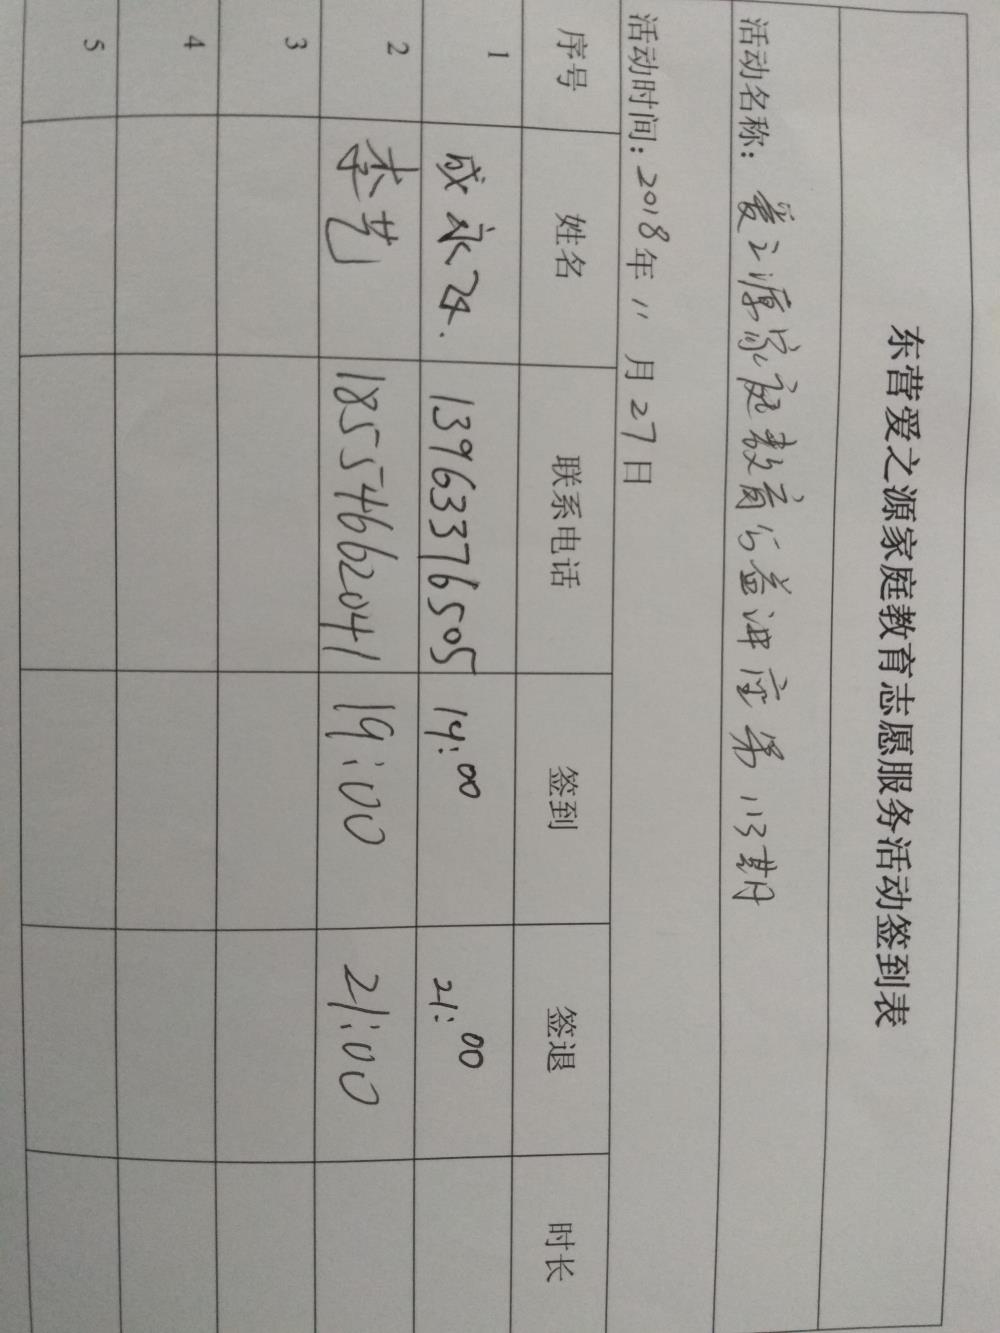 东营爱之源家庭教育志愿服务活动签到表
活动名称：爱之源家庭教育公益讲座第113期
活动时间：2018年11月27日
序号 姓名 联系电话 签到 签退 时长
1 成永 13963376505 14:00 21:00
2 李艺 18554662041 19:00 21:00
3
4
5